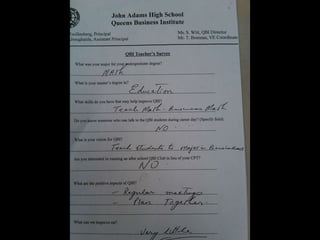 John Adams High School
Queens Business Institute
Principal
Mr. S. Witt, QBI Director
Assistant Principal
Mr. T. Bommer, VE Coordinator
QBI Teacher's Survey
What was your major for your undergraduate degree?
MATH
What is your master's degree in?
Education
What skills do you have that may help improve QBI?
Teach Math - Business Math
Do you know someone who can talk to the QBI students during career day? (Specify field)
NO
What is your vision for QBI?
Teach students to major in Business
Are you interested in running an after school QBI Club in lieu of your CPT?
NO
What are the positive aspects of QBI?
- Regular meetings
- Plan Together
What can we improve on?
Very little